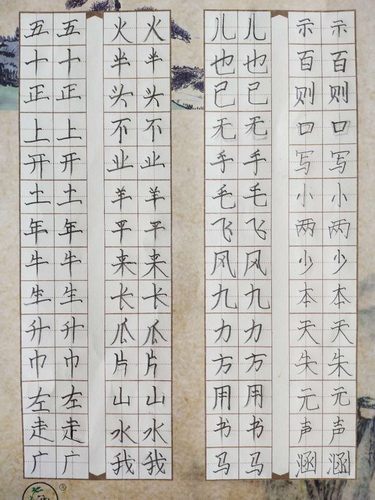 五五火火儿儿示示
十十半半也也百百
正正头头巳巳则则
上上不不无无口口
开开业业手手写写
土土羊羊毛毛小小
年年平平飞飞两两
牛牛来来风风少少
生生长长九九本本
升升瓜瓜力力天天
巾巾片片方方失朱
左左山山用用元元
走走水水书书声声
广广我我马马涵涵